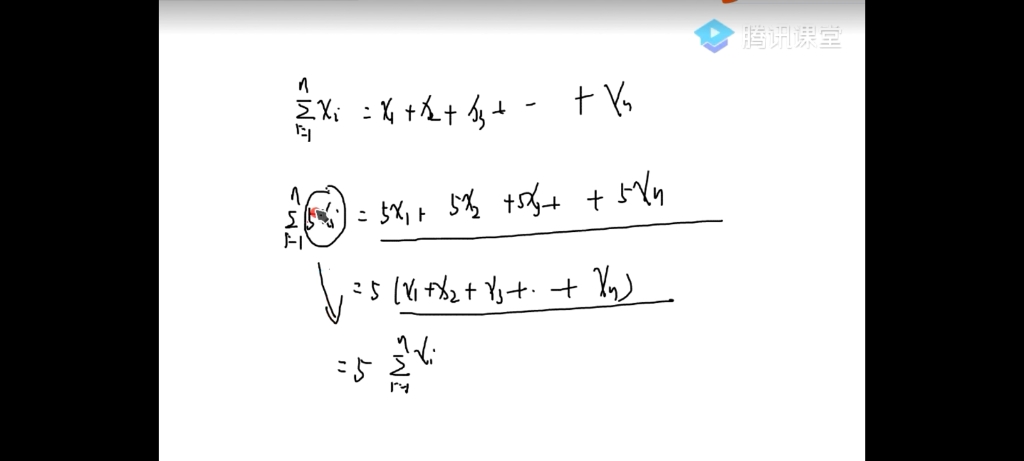 腾讯课堂
n
∑ xi = x1 + x2 + x3 + - + xn
i=1
n
∑ 5xi = 5x1 + 5x2 + 5x3 + + 5xn
i=1
= 5 (x1 + x2 + x3 + ·· + xn)
n
= 5 ∑ xi
i=1